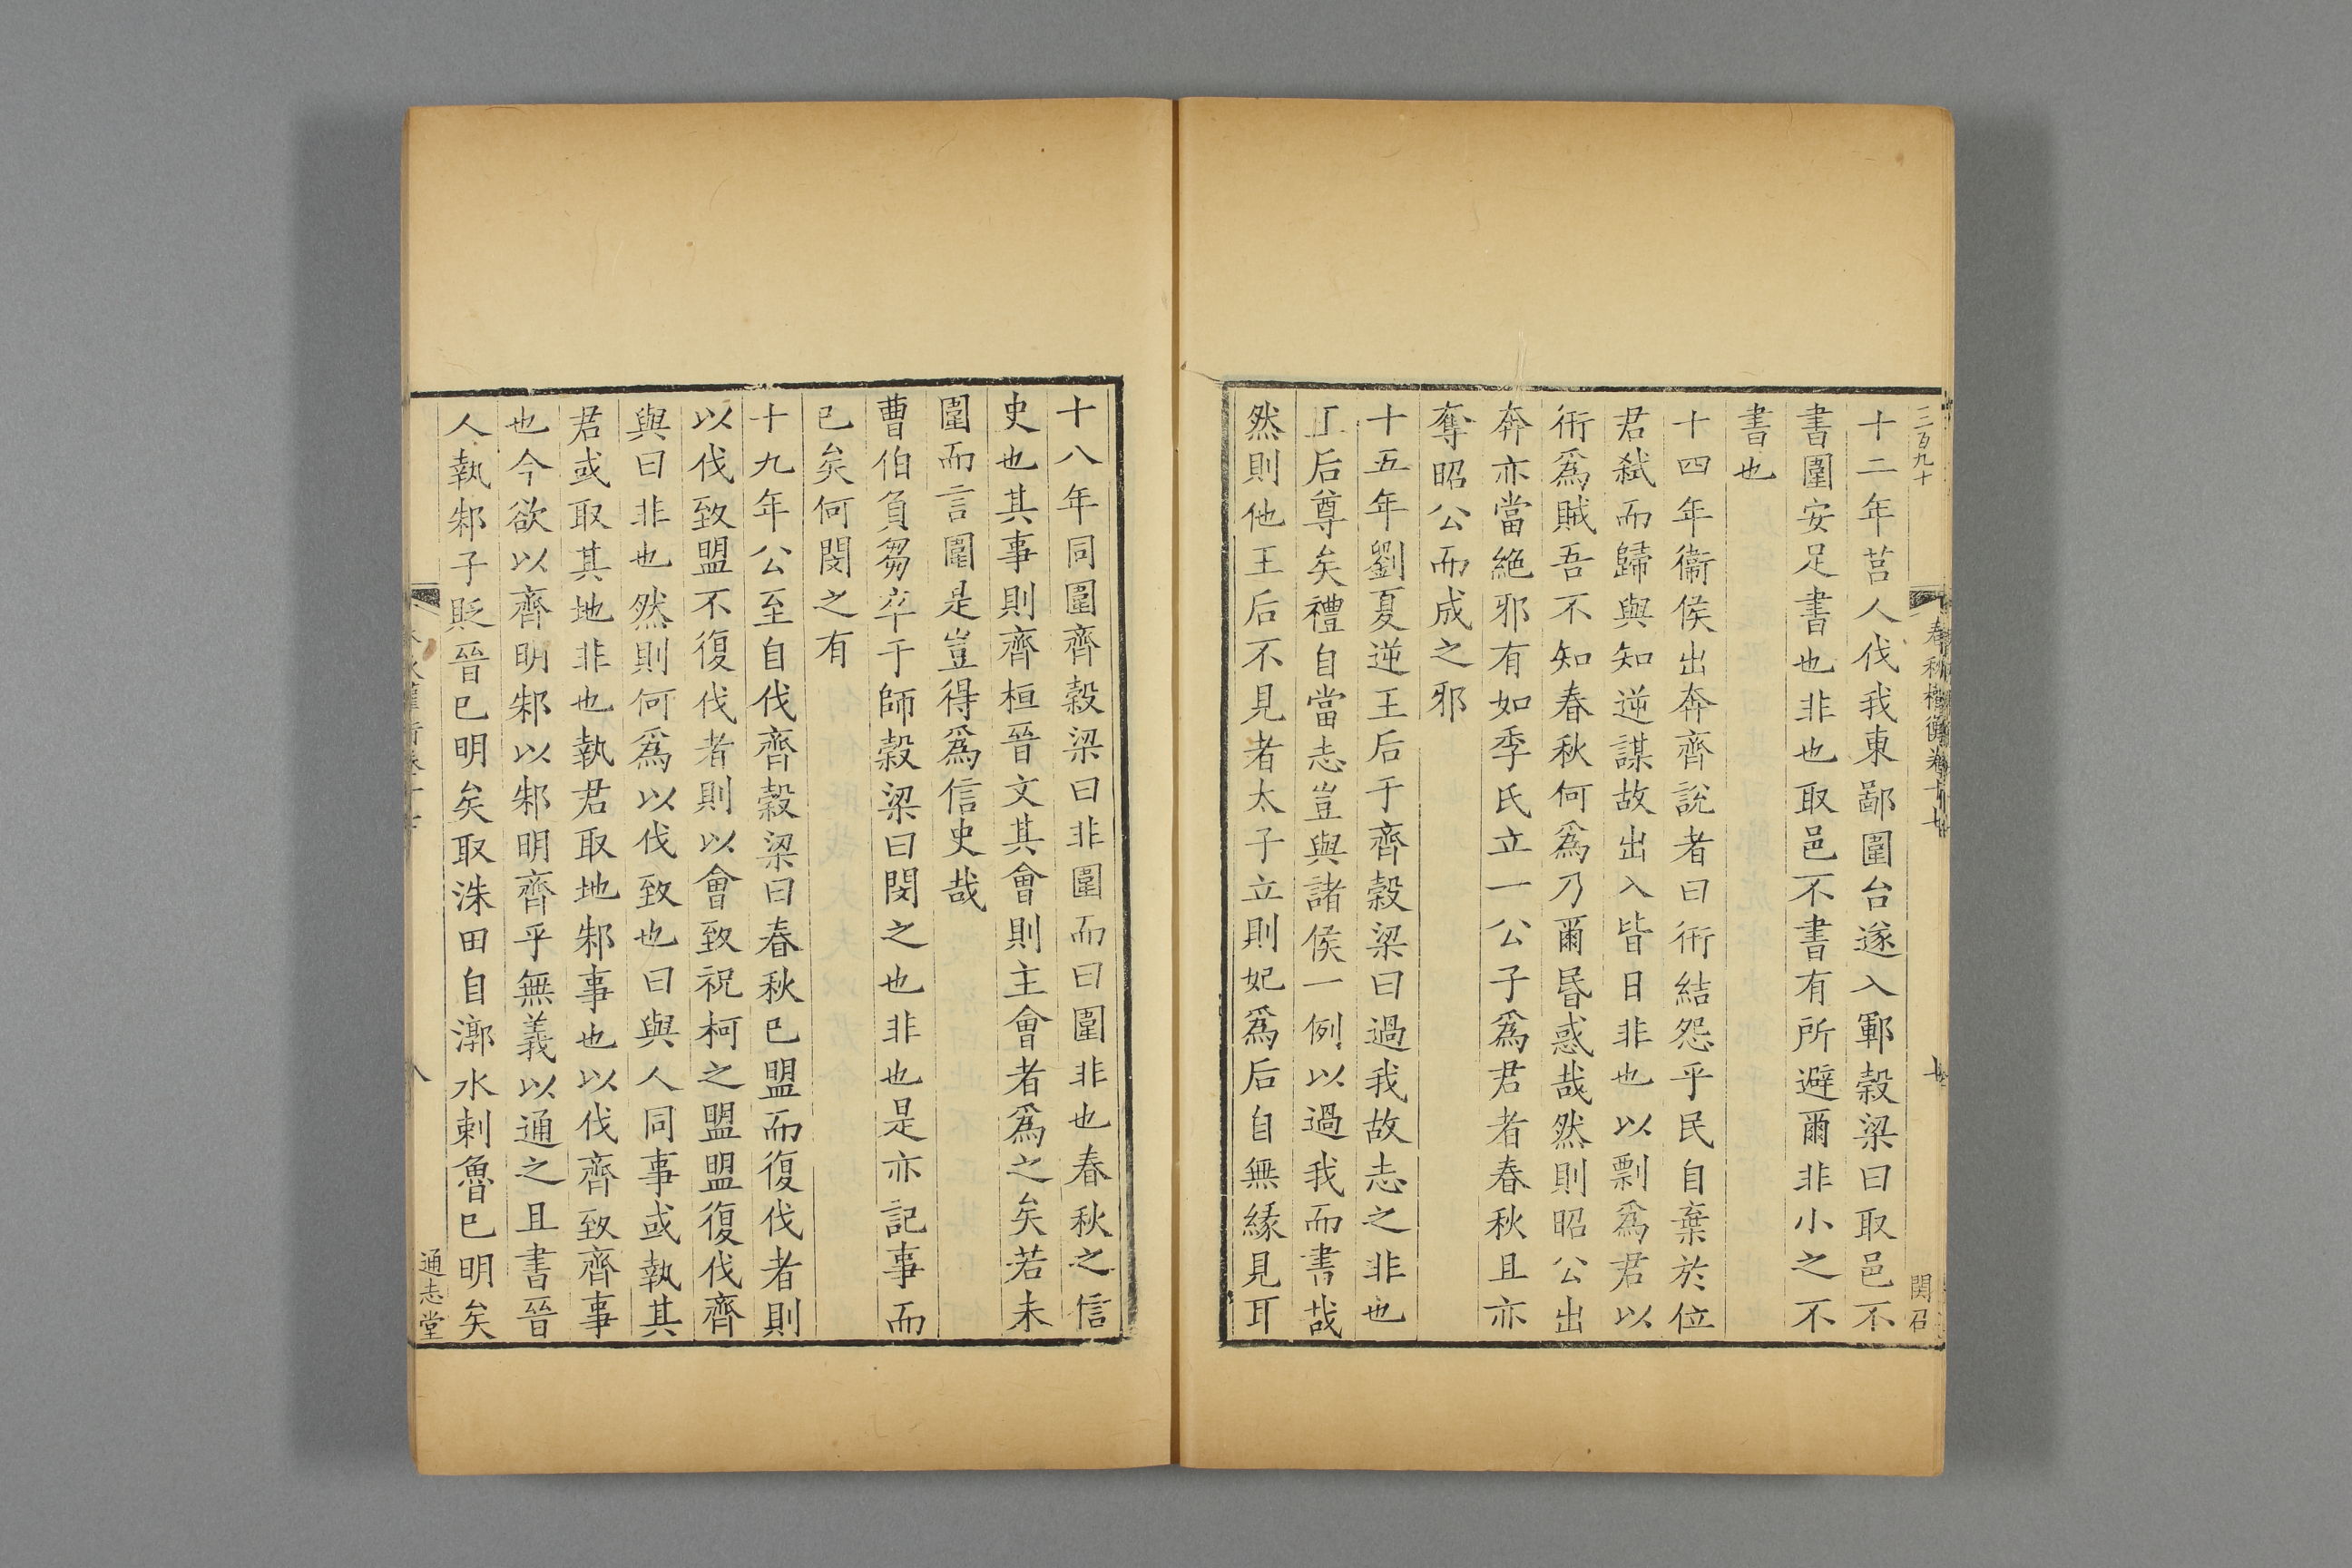 三百九十
十二年莒人伐我東鄙圍台遂入鄆穀梁曰取邑不
書圍安足書也非也取邑不書有所避爾非小之不
書也
十四年衞侯出奔齊說者曰衎結怨乎民自棄於位
君弑而歸與知逆謀故出入皆日非也以剽爲君以
衎爲賊吾不知春秋何爲乃爾昬惑哉然則昭公出
奔亦當絶邪有如季氏立一公子爲君者春秋且亦
奪昭公而成之邪
十五年劉夏逆王后于齊穀梁曰過我故志之非也
后尊矣禮自當志豈與諸侯一例以過我而書哉
然則他王后不見者太子立則妃爲后自無緣見耳
春秋權衡卷十七
関召
十八年同圍齊穀梁曰非圍而曰圍非也春秋之信
史也其事則齊桓晉文其會則主會者爲之矣若未
圍而言圍是豈得爲信史哉
曹伯負芻卒于師穀梁曰閔之也非也是亦記事而
已矣何閔之有
十九年公至自伐齊穀梁曰春秋已盟而復伐者則
以伐致盟不復伐者則以會致祝柯之盟盟復伐齊
與曰非也然則何爲以伐致也曰與人同事或執其
君或取其地非也執君取地邾事也以伐齊致齊事
也今欲以齊明邾以邾明齊乎無義以通之且書晉
人執邾子貶晉已明矣取漷田自漷水剌魯已明矣
八
通志堂